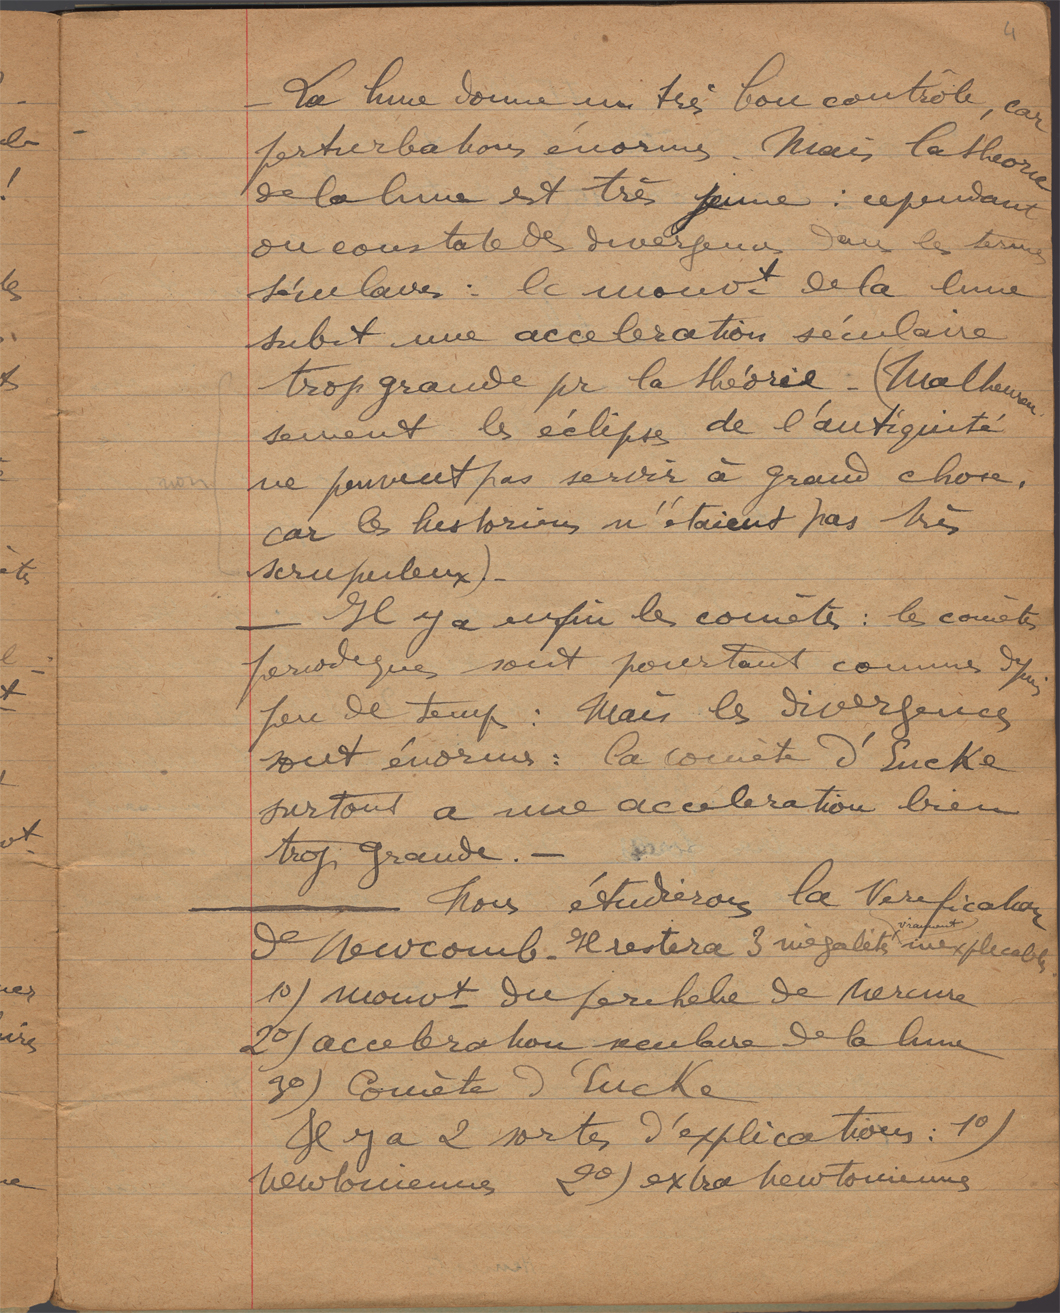 4
- La lune donne un très bon contrôle, car
perturbations énormes. Mais la théorie
de la lune est très jeune : cependant
on constate des divergences dans les termes
séculaires : le mouv.t de la lune
subit une acceleration séculaire
trop grande pr la théorie - (Malheureu
sement les éclipses de l'antiquité
ne peuvent pas servir à grand chose,
non,
car les historiens n'étaient pas très
scrupuleux). -
— Il y a enfin les comètes : les comètes
periodiques sont pourtant connues depuis
peu de temps : Mais les divergences
sont énormes : la comète d'Encke
surtout a une acceleration bien
trop grande. —
Nous étudierons la Verification
de Newcomb. Il restera 3 inégalités vraiment inexplicables.
1º) mouvt du perihelie de Mercure
2º) acceleration seculaire de la lune
3º) Comète d'Encke
Il y a 2 sortes d'explications : 1º)
newtoniennes 2º) extra newtoniennes